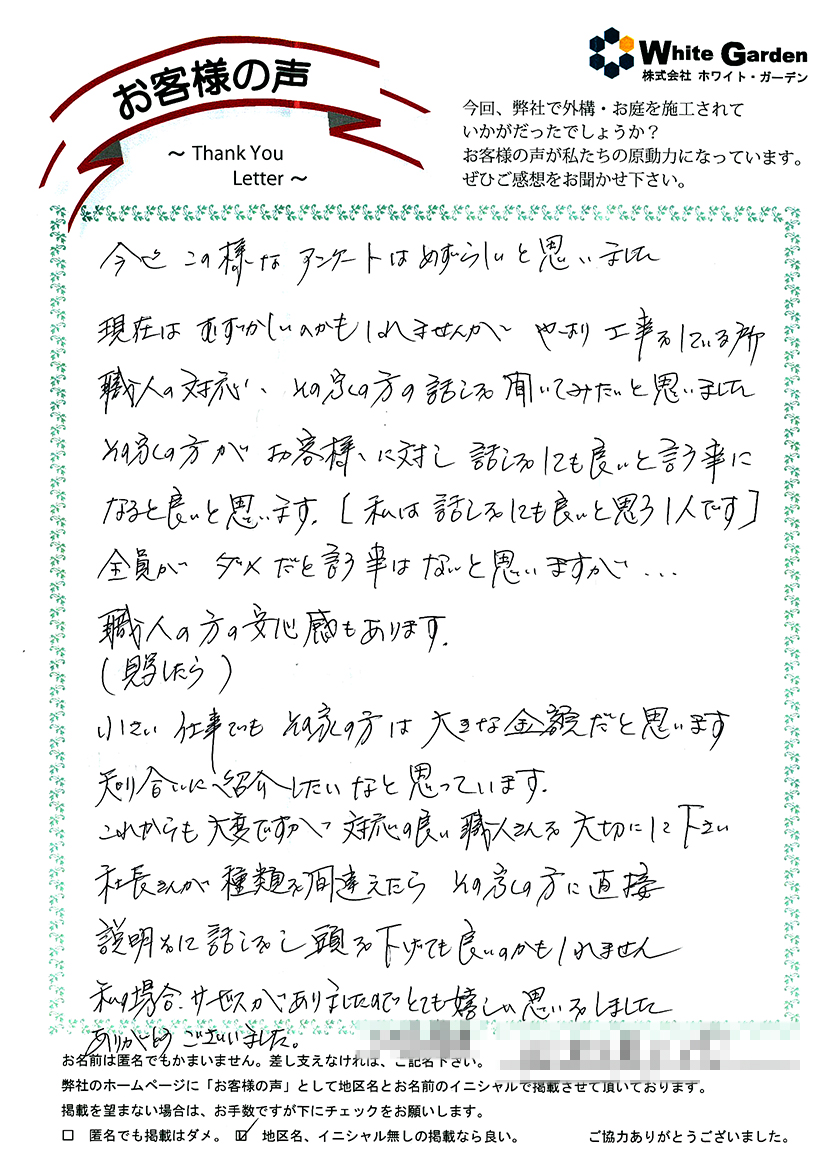 お客様の声
～ Thank You
Letter ～
White Garden
株式会社 ホワイト・ガーデン
今回、弊社で外構・お庭を施工されて
いかがだったでしょうか？
お客様の声が私たちの原動力になっています。
ぜひご感想をお聞かせ下さい。
今どこの様なアンケートはめずらしいと思いました
現在はむずかしいのかもしれませんが やはり工事をしている所
職人の対応、その家の方の話しを聞いてみたいと思いました
その家の方がお客様に対し話しをしても良いと言う事に
なると良いと思います。[私は話しをしても良いと思う1人です]
全員がダメだと言う事はないと思いますが...
職人の方の安心感もあります。
(見学したら)
小さい仕事でもその家の方は大きな金額だと思います
知り合いに紹介したいなと思っています。
これからも大変ですが 対応の良い職人さんを大切にして下さい
社長さんが種類を間違えたら その家の方に直接
説明 に話しをし頭を下げても良いのかもしれません
私の場合、サービスがありましたのでとても嬉しい思いをしました
ありがとうございました。
お名前は匿名でもかまいません。差し支えなければ、ご記名下さい。
弊社のホームページに「お客様の声」として地区名とお名前のイニシャルで掲載させて頂いております。
掲載を望まない場合は、お手数ですが下にチェックをお願いします。
□ 匿名でも掲載はダメ。 ☑ 地区名、イニシャル無しの掲載なら良い。 ご協力ありがとうございました。